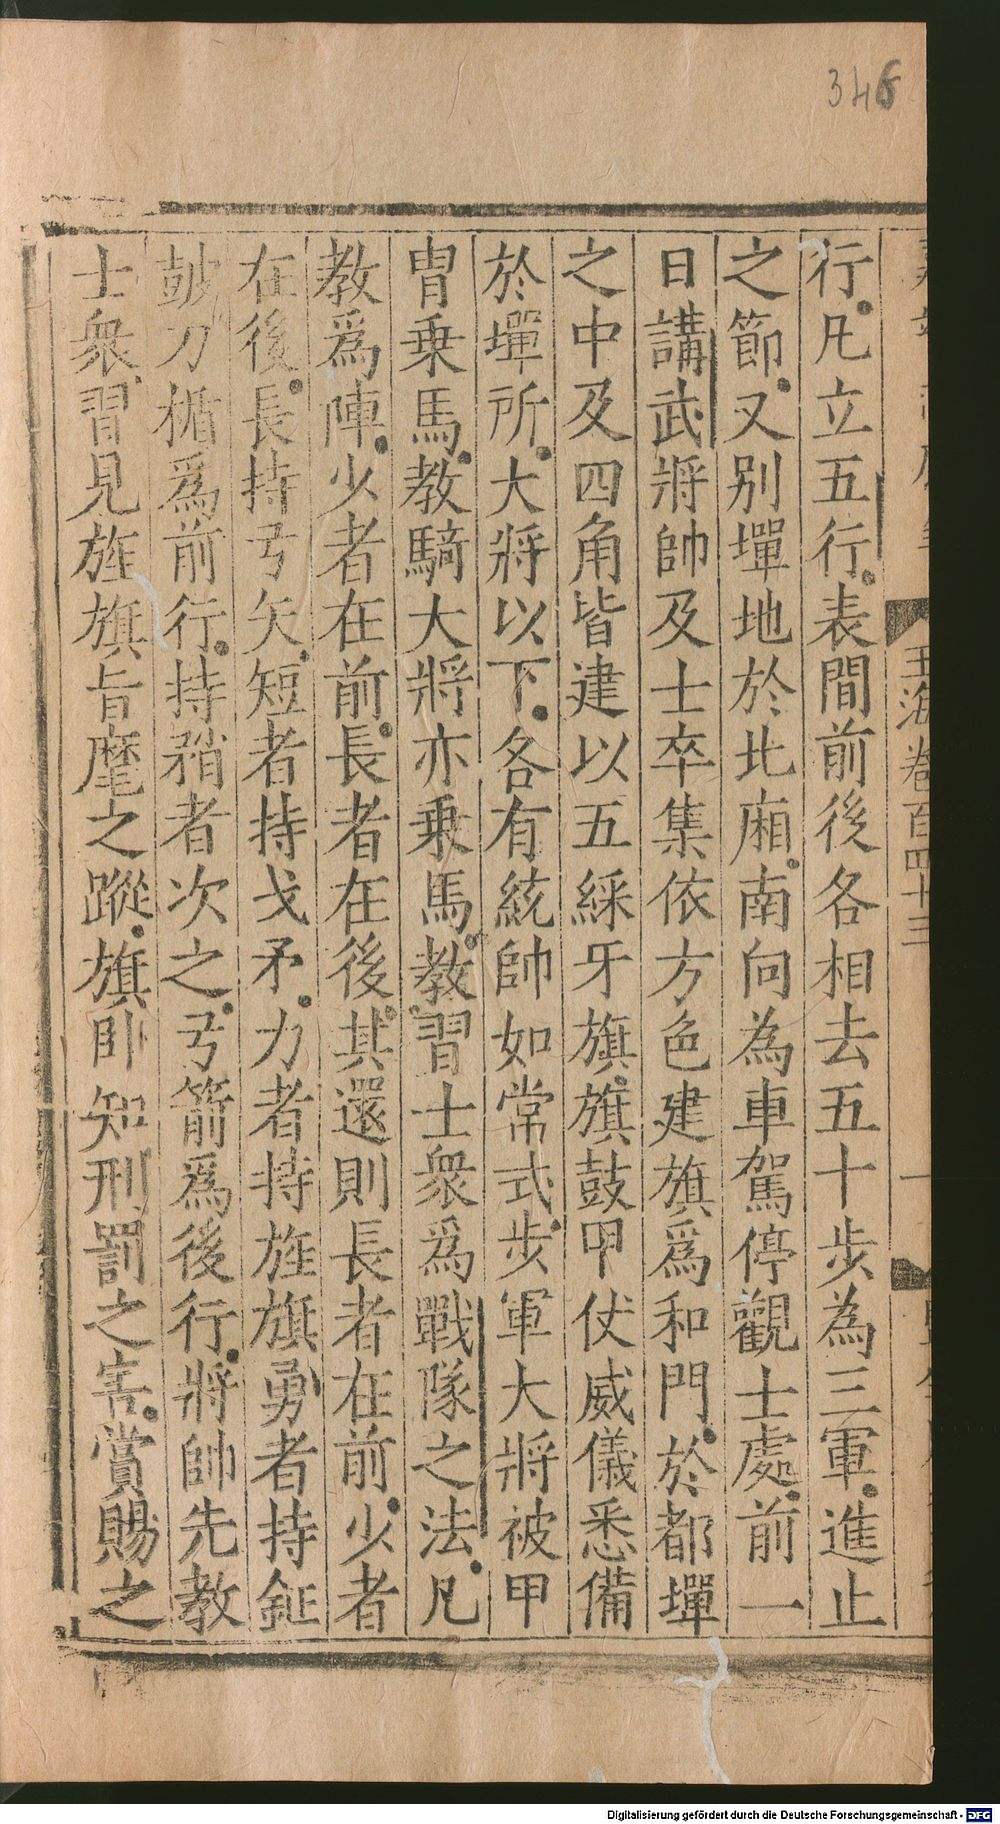 346
玉海卷百四十三
行凡立五行表間前後各相去五十步為三軍進止
之節又別墠地於北廂南向為車駕停觀士處前一
日講武將帥及士卒集依方色建旗爲和門於都墠
之中及四角皆建以五綵牙旗旗鼓甲仗威儀悉備
於墠所大將以下各有統帥如常式步軍大將被甲
胄乗馬教騎大將亦乗馬教習士衆爲戰隊之法凡
教爲陣少者在前長者在後其還則長者在前少者
在後長持弓矢短者持戈矛力者持旌旗勇者持鉦
鼓刀楯爲前行持矟者次之弓箭爲後行將帥先教
士衆習見旌旗旨麾之蹤旗卧知刑罰之害賞賜之
Digitalisierung gefördert durch die Deutsche Forschungsgemeinschaft - DFG